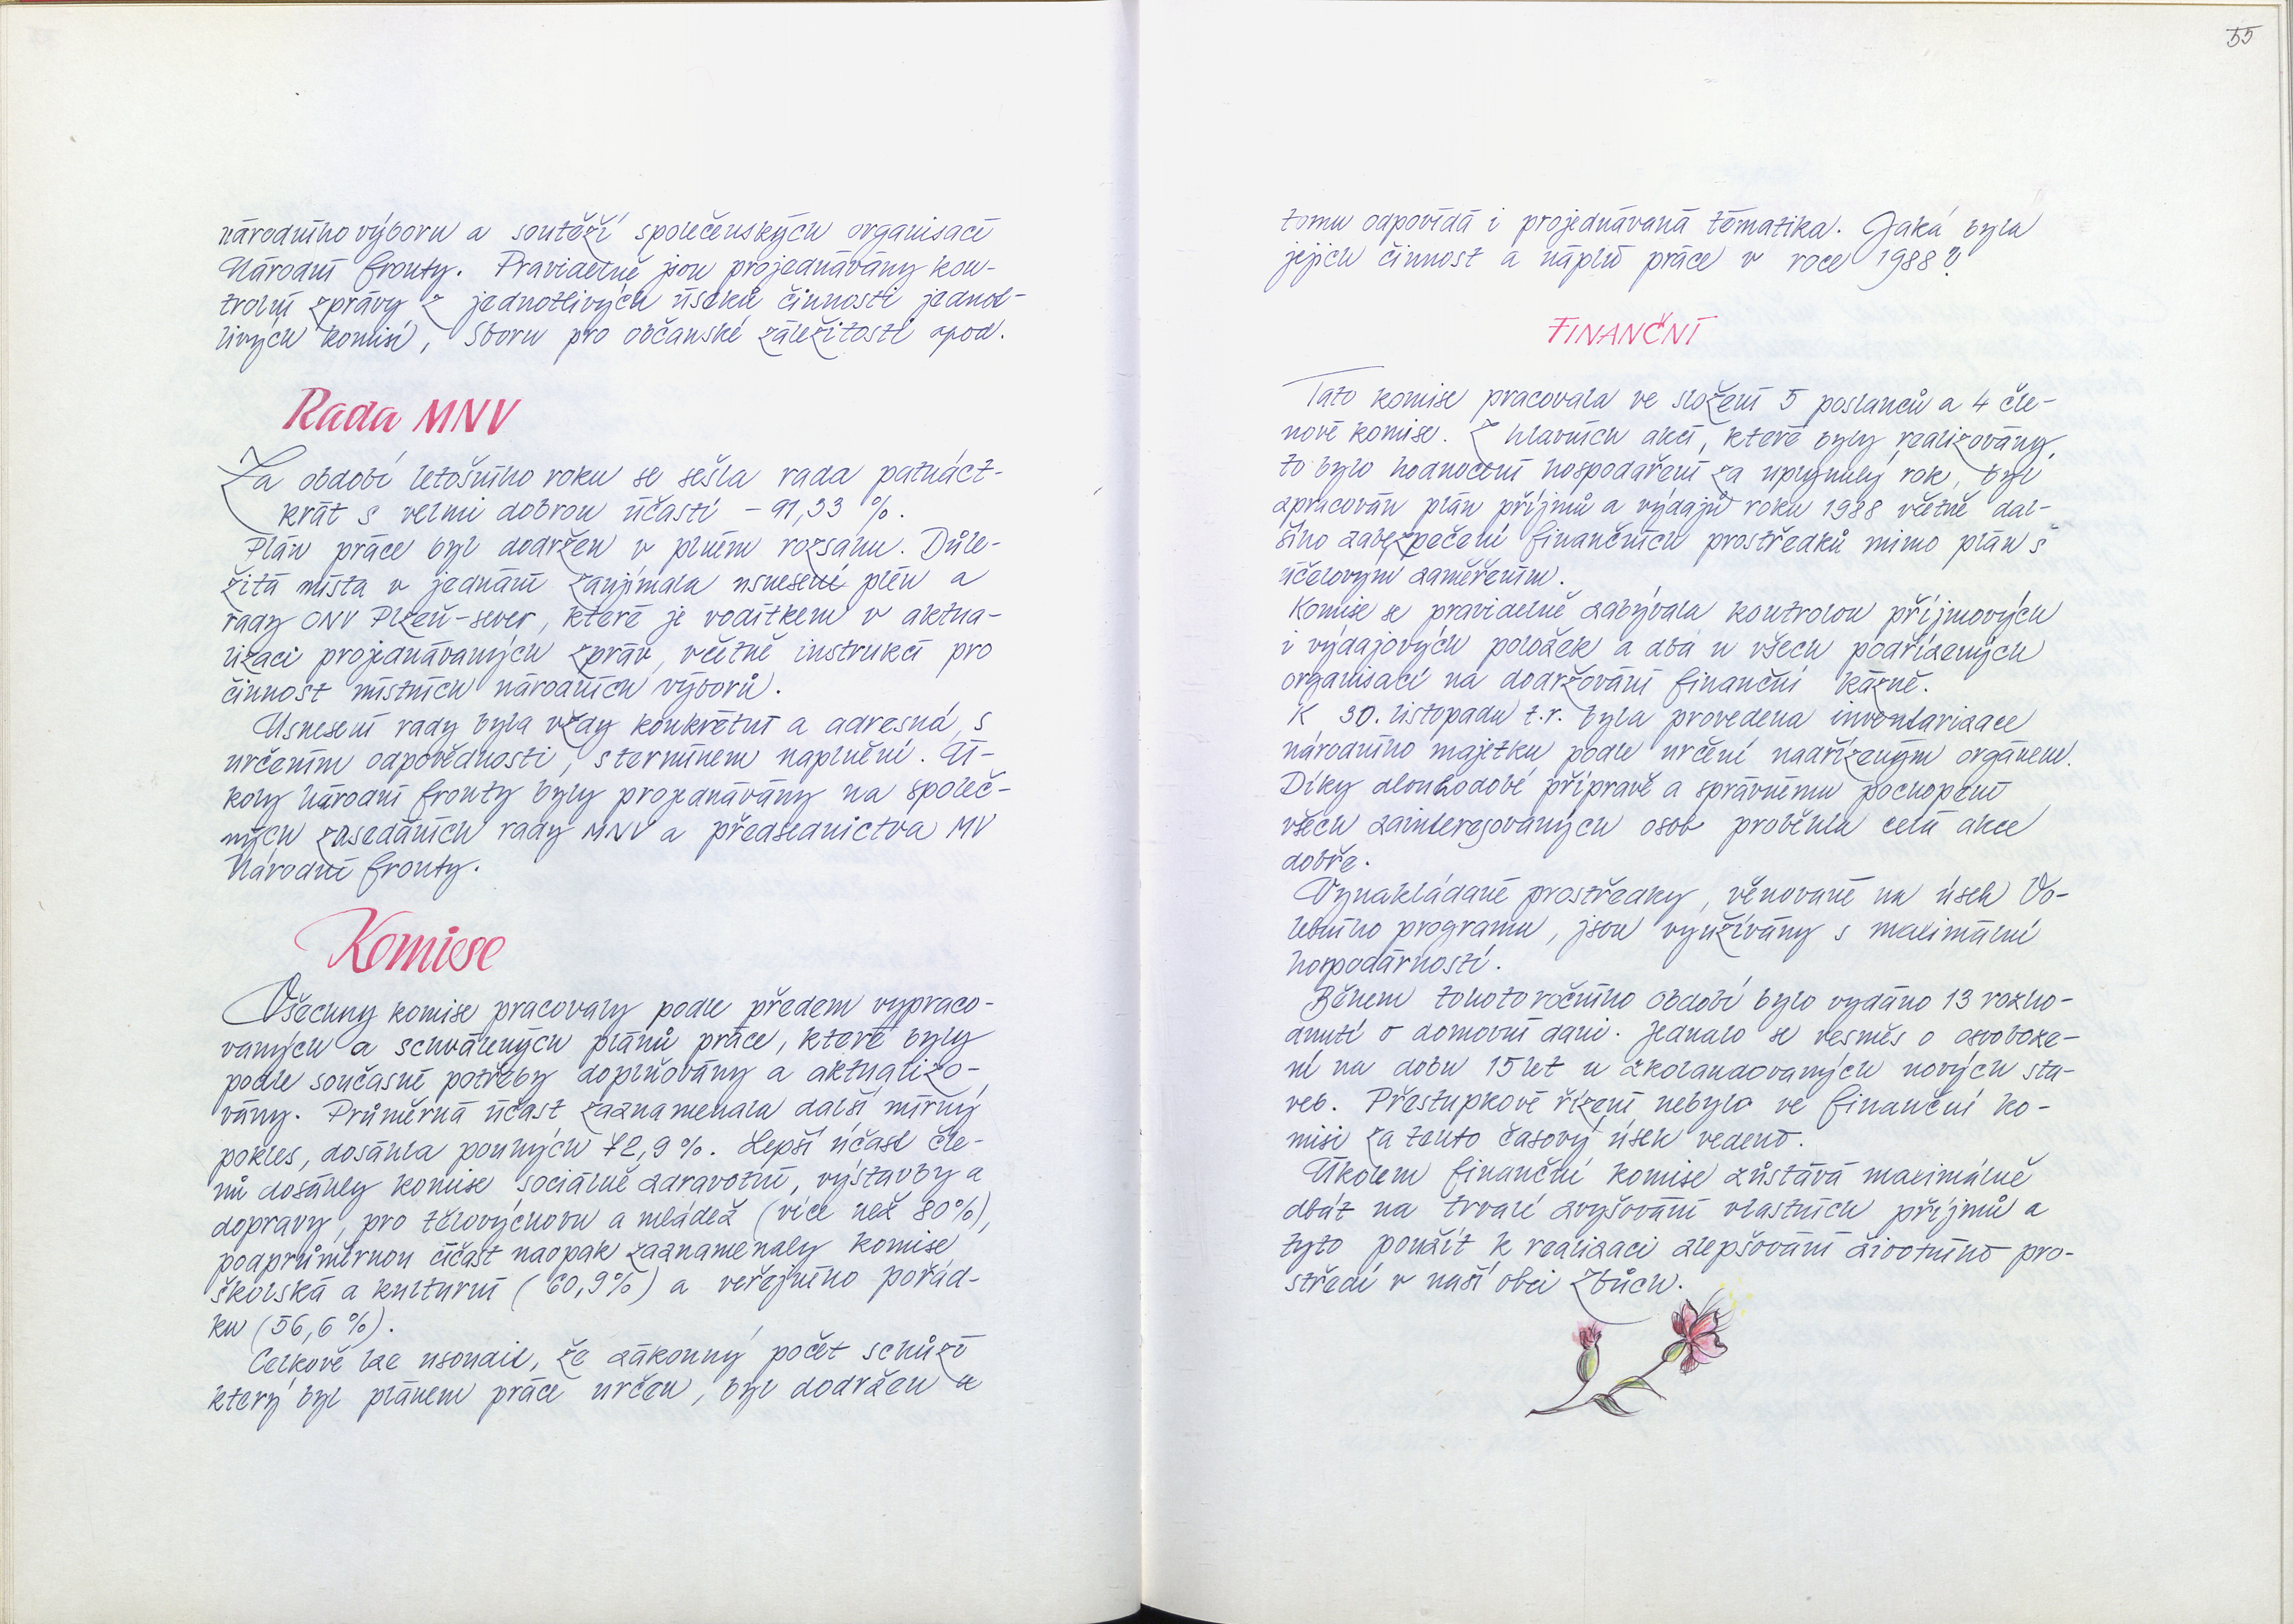 národního výboru a soutěží společenských organisací
Národní fronty. Pravidelně jsou projednávány kon-
trolní zprávy z jednotlivých úseků činnosti jednot-
livých komisí, Sboru pro občanské záležitosti apod.
Rada MNV
Za období letošního roku se sešla rada patnáct-
krát s velmi dobrou účastí - 91,33 %.
Plán práce byl dodržen v plném rozsahu. Důle-
žitá místa v jednání zaujímala usnesení plén a
rady ONV Plzeň-sever, které je vodítkem v aktua-
lizaci projednávaných zpráv, včetně instrukcí pro
činnost místních národních výborů.
Usnesení rady byla vždy konkrétní a adresná, s
určením odpovědnosti, s termínem naplnění. Ú-
koly Národní fronty byly projednávány na společ-
ných zasedáních rady MNV a předsednictva MV
Národní fronty.
Komise
Všechny komise pracovaly podle předem vypraco-
vaných a schválených plánů práce, které byly
podle současné potřeby doplňovány a aktualizo-
vány. Průměrná účast zaznamenala další mírný
pokles, dosáhla pouhých 72,9 %. Lepší účast čle-
nů dosáhly komise sociálně zdravotní, výstavby a
dopravy, pro tělovýchovu a mládež (více než 80%),
podprůměrnou účast naopak zaznamenaly komise
školská a kulturní (60,9%) a veřejného pořád-
ku (56,6 %).
Celkově lze usoudit, že zákonný počet schůzí
který byl plánem práce určen, byl dodržen a
55
tomu odpovídá i projednávaná tématika. Jaká byla
jejich činnost a náplň práce v roce 1988?
FINANČNÍ
Tato komise pracovala ve složení 5 poslanců a 4 čle-
nové komise. Z hlavních akcí, které byly realizovány,
to bylo hodnocení hospodaření za uplynulý rok, byl
zpracován plán příjmů a výdajů roku 1988 včetně dal-
šího zabezpečení finančních prostředků mimo plán s
účelovým zaměřením.
Komise se pravidelně zabývala kontrolou příjmových
i výdajových položek a dbá u všech podřízených
organisací na dodržování finanční kázně.
K 30. listopadu t.r. byla provedena inventarizace
národního majetku podle určení nadřízeným orgánem.
Díky dlouhodobé přípravě a správnému pochopení
všech zainteresovaných osob proběhla celá akce
dobře.
Vynakládané prostředky, věnované na úsek Vo-
lebního programu, jsou využívány s maximální
hospodárností.
Během tohotoročního období bylo vydáno 13 rozho-
dnutí o domovní dani. Jednalo se vesměs o osvoboze-
ní na dobu 15 let u zkolaudovaných nových sta-
veb. Přestupkové řízení nebylo ve finanční ko-
misi za tento časový úsek vedeno.
Úkolem finanční komise zůstává maximálně
dbát na trvalé zvyšování vlastních příjmů a
tyto použít k realizaci zlepšování životního pro-
středí v naší obci Zbůch.